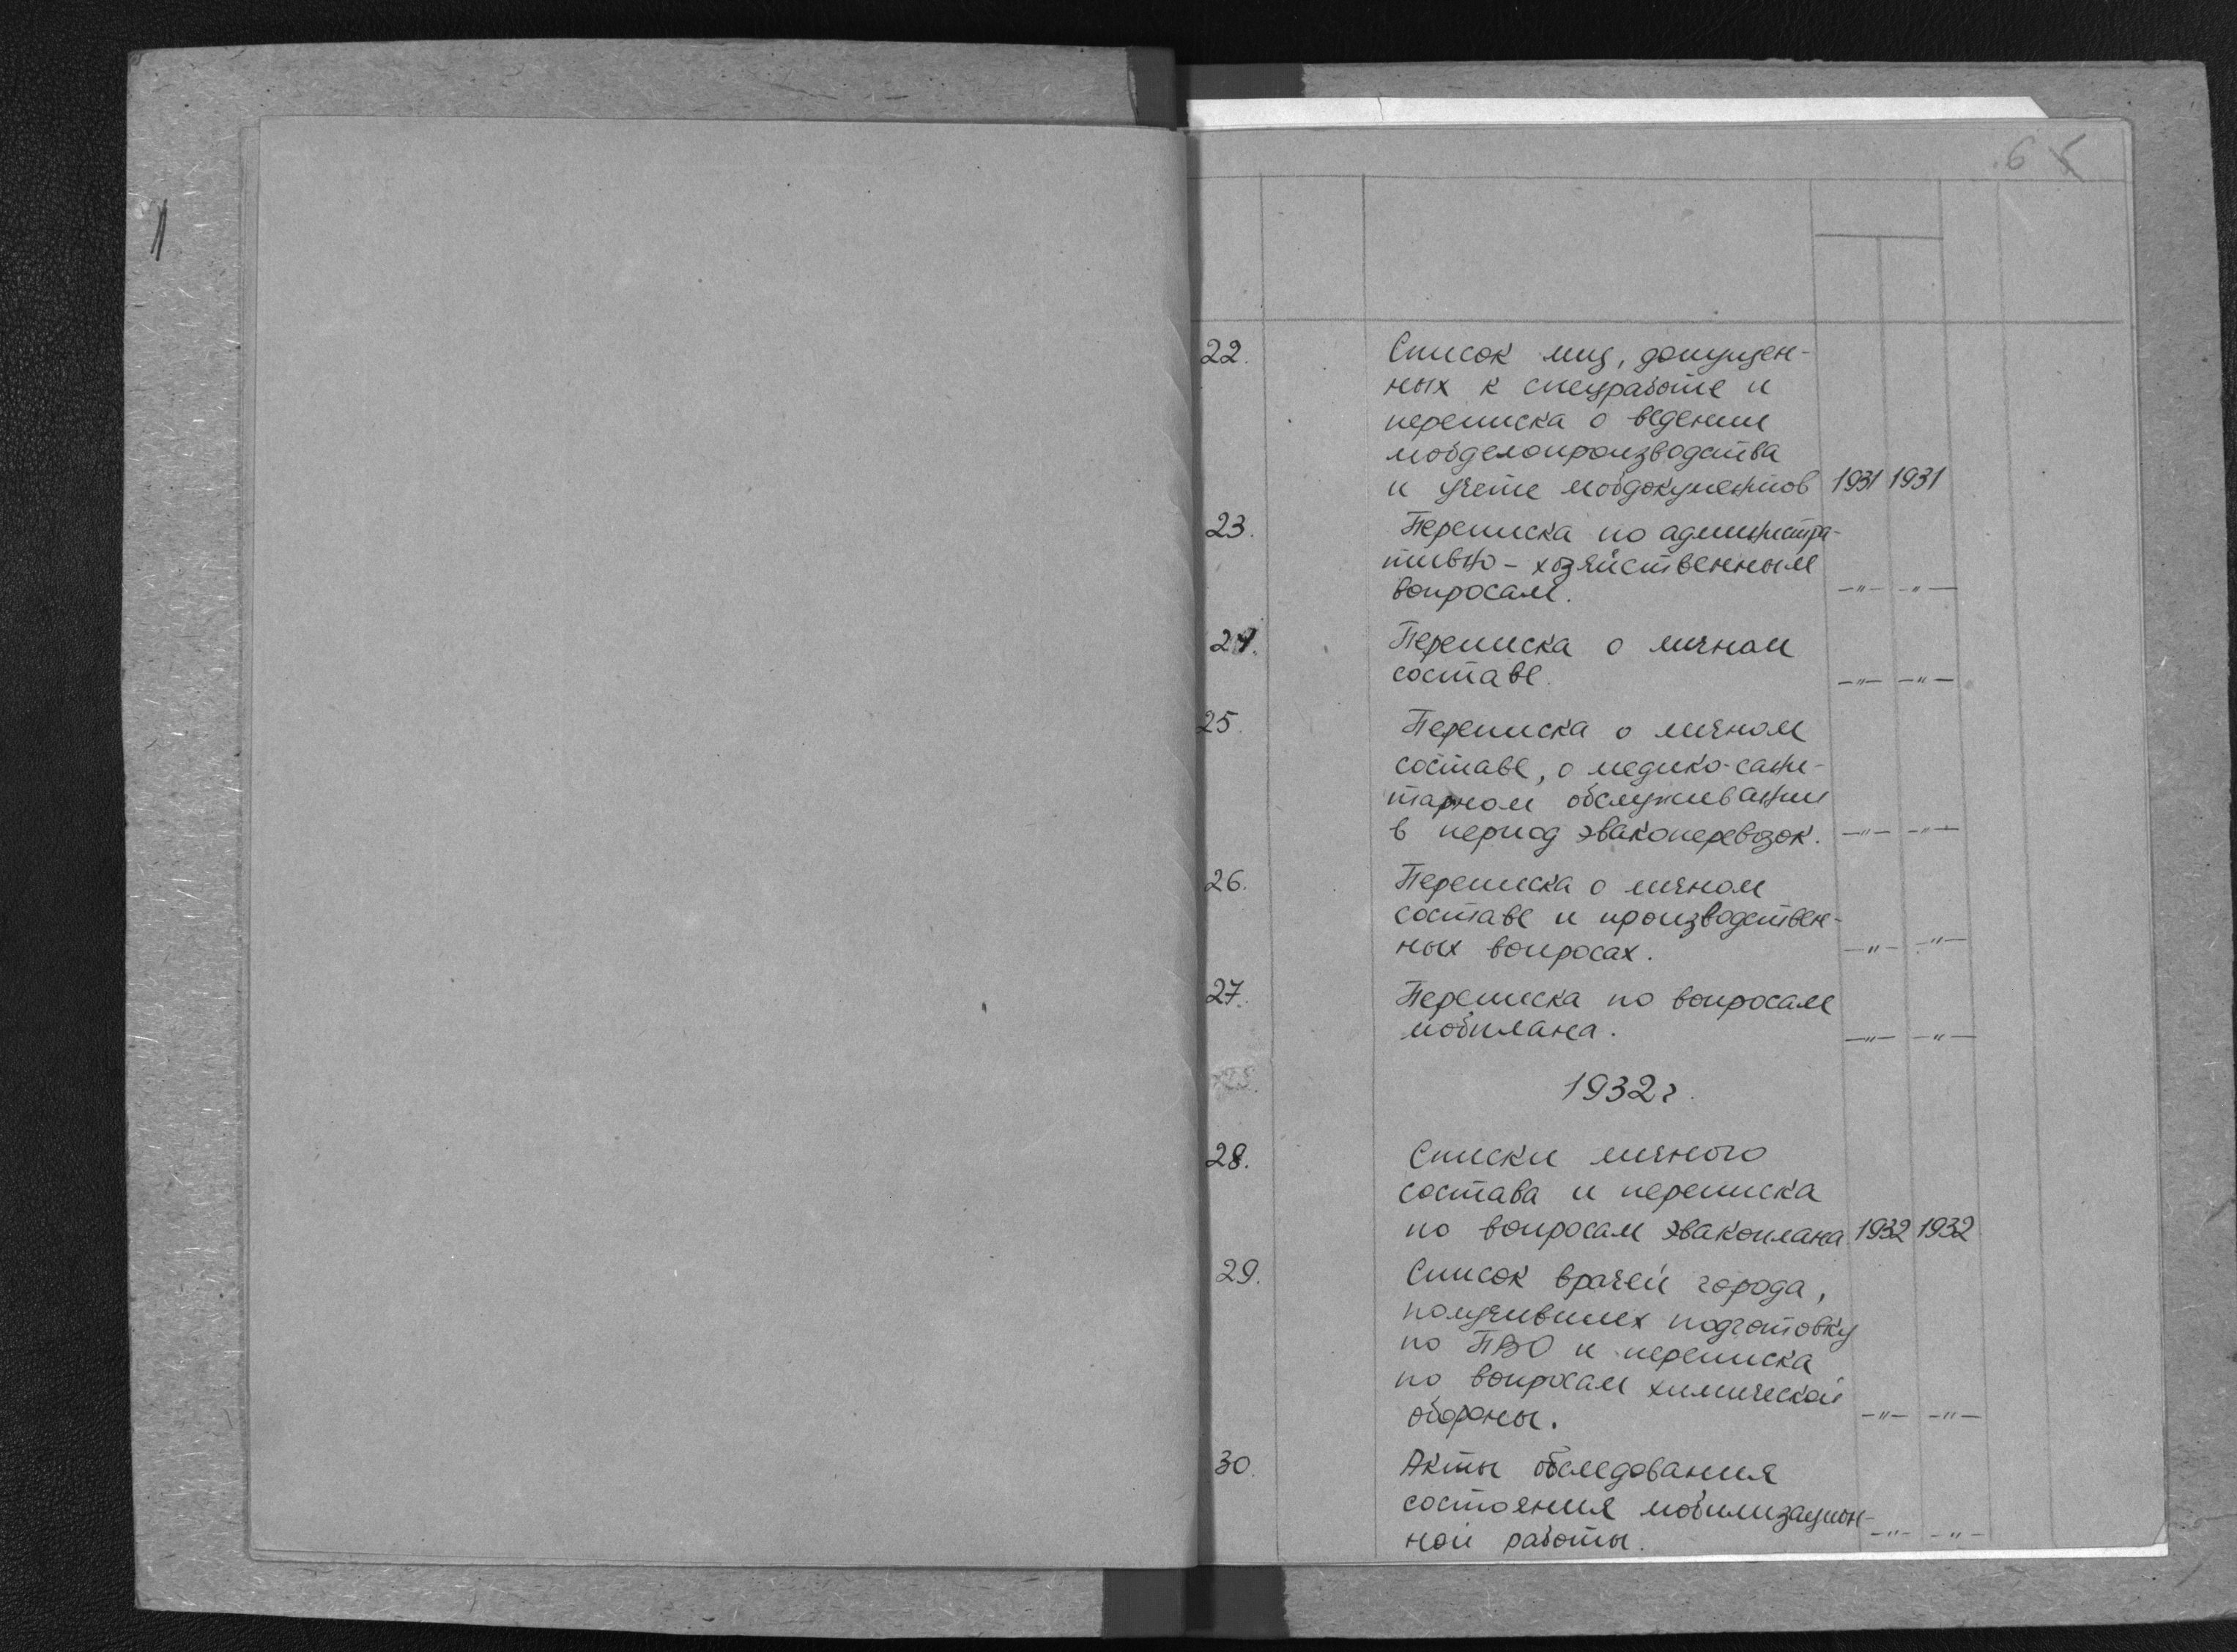 6 5
22. Список лиц, допущен-
ных к спецработе и
переписка о ведении
мобделопроизводства
и учете мобдокументов 1931 1931
23. Переписка по администра-
тивно-хозяйственным
вопросам. —"— —"—
24. Переписка о личном
составе. —"— —"—
25. Переписка о личном
составе, о медико-сани-
тарном обслуживании
в период эвакоперевозок. —"— —"—
26. Переписка о личном
составе и производствен-
ных вопросах. —"— —"—
27. Переписка по вопросам
мобплана. —"— —"—
1932 г.
28. Списки личного
состава и переписка
по вопросам эвакоплана 1932 1932
29. Список врачей города,
получивших подготовку
по ПВО и переписка
по вопросам химической
обороны. —"— —"—
30. Акты обследования
состояния мобилизацион-
ной работы. —"— —"—